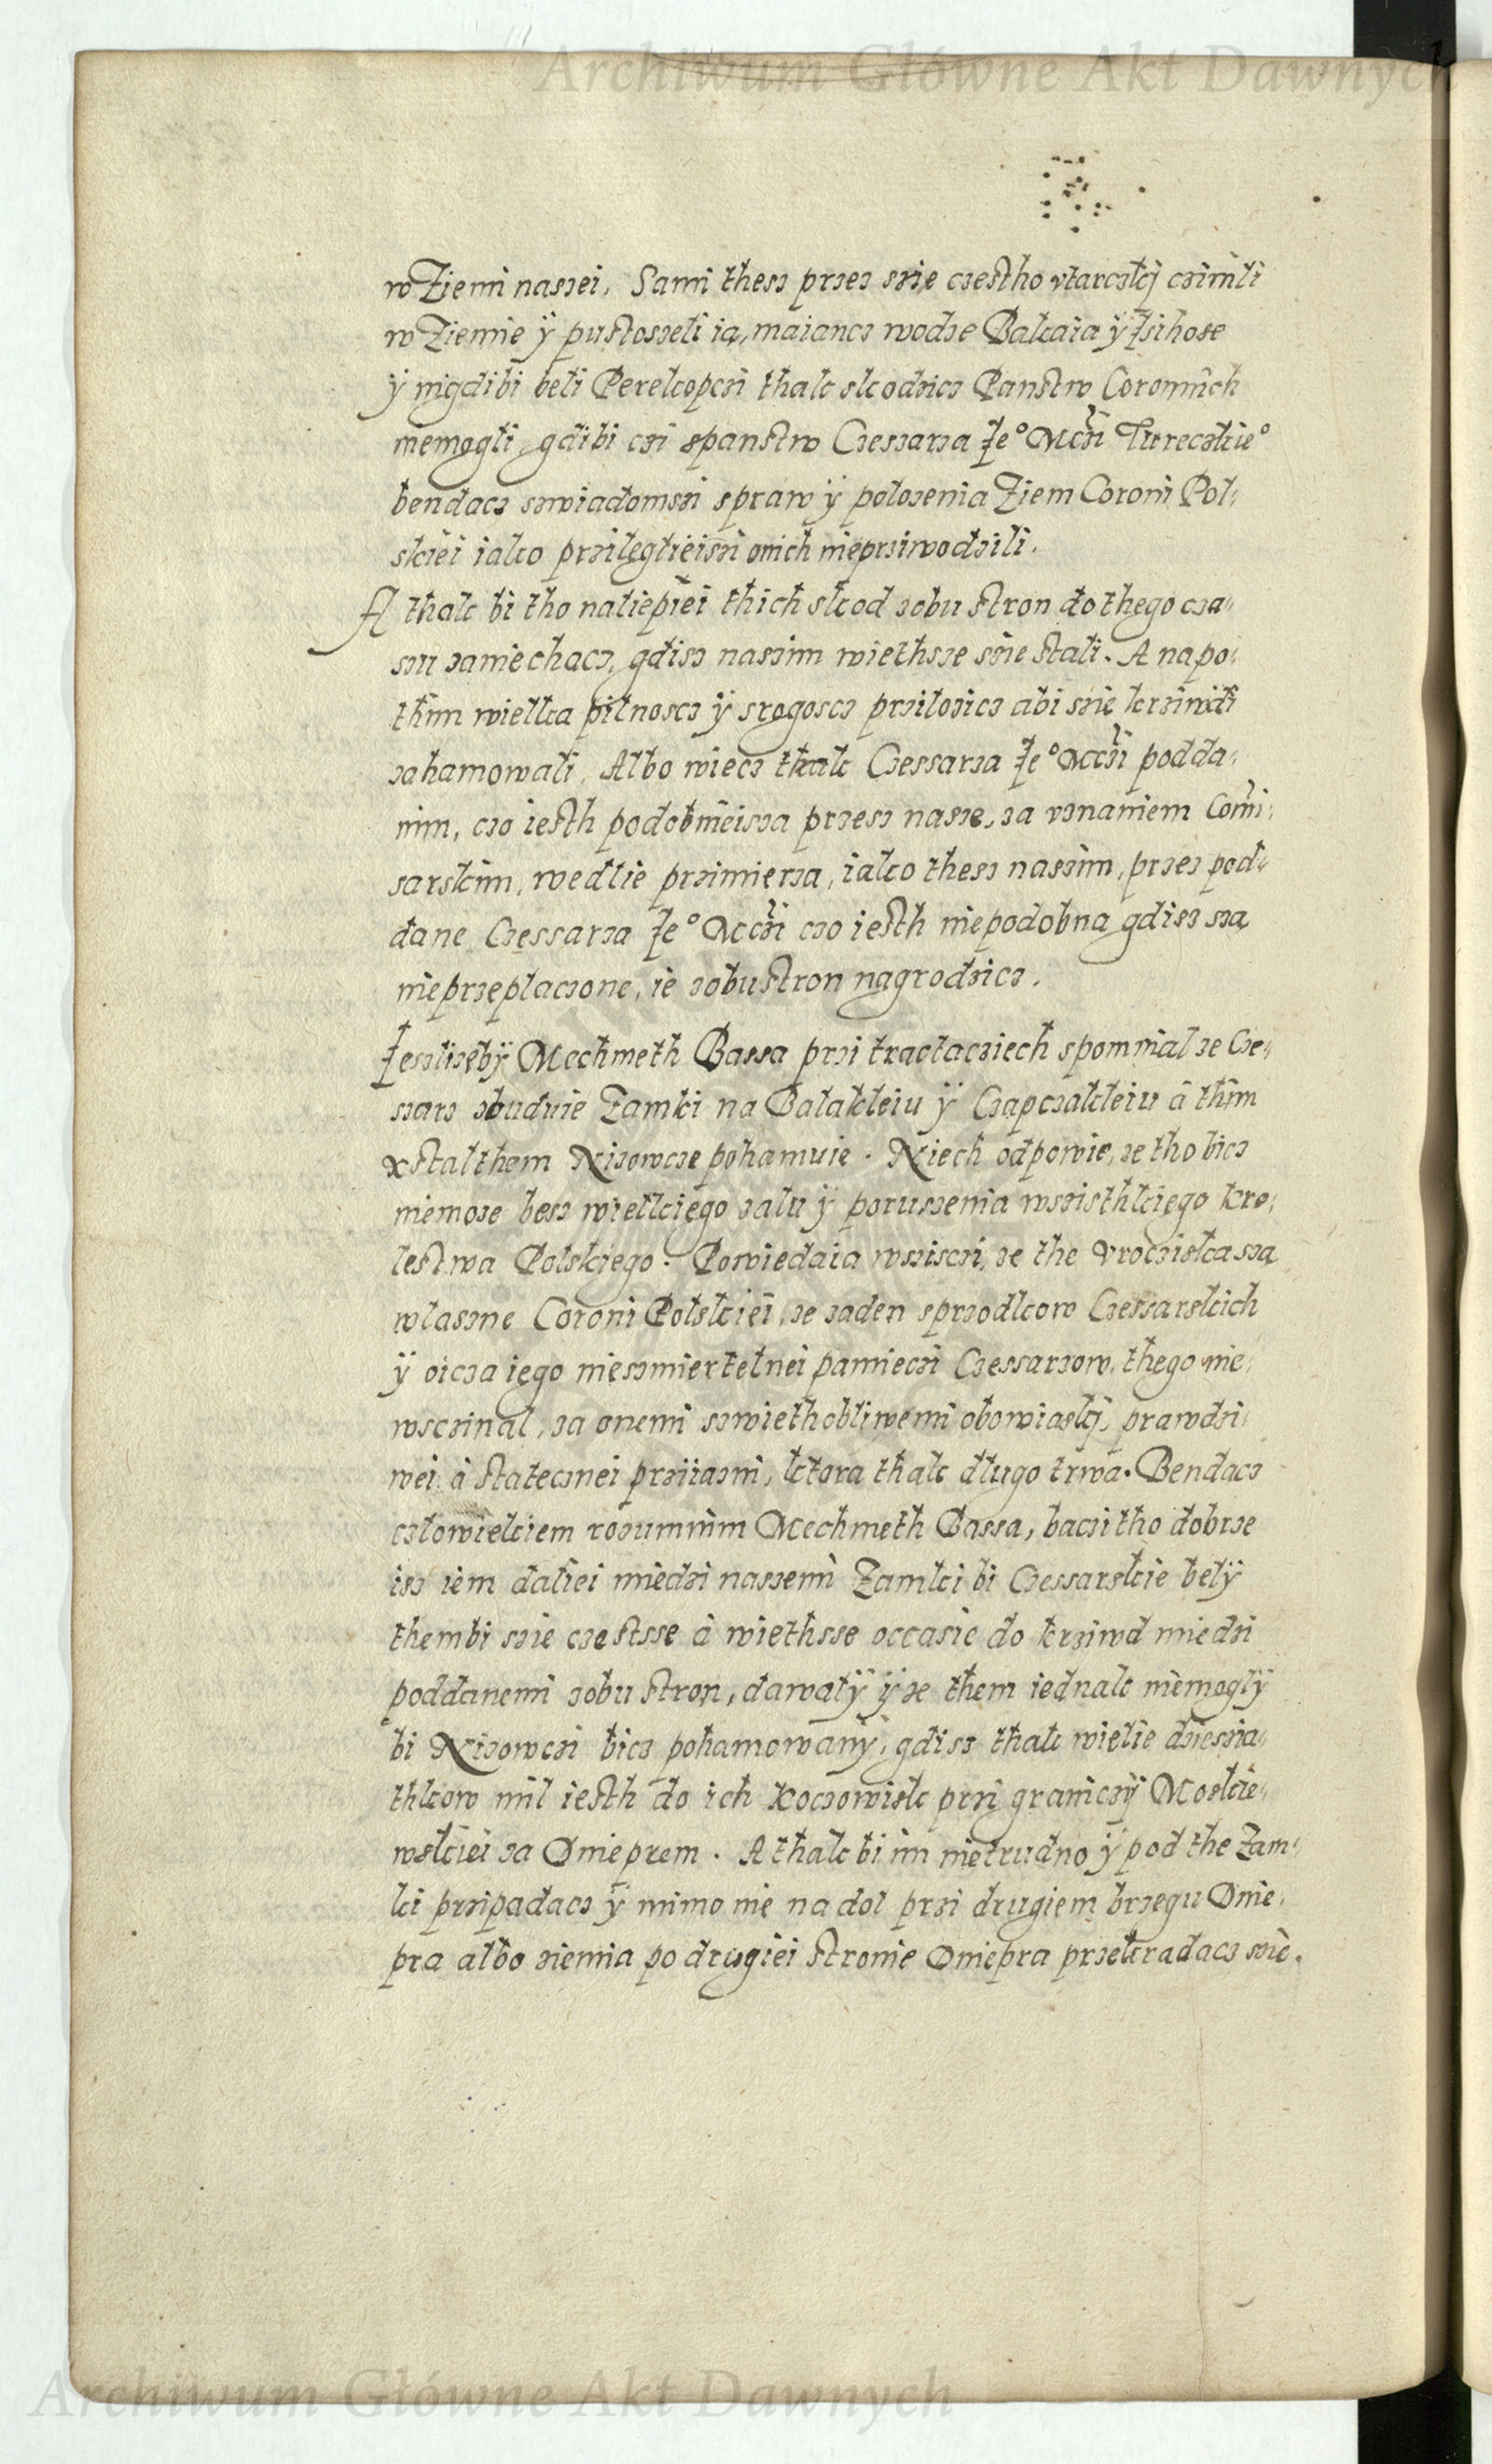 Archiwum Główne Akt Dawnych
w Ziemi naszei, Sami thesz przez szie czestho vtarczkÿ czinili
w Ziemie ÿ pustoszeli ia, maiancz wodze Bakaia ÿ Jsihoze
ÿ nigdibi beli Perekopczi thak skodzicz Panstw Coronnich
niemogli, gdibi czi spanstw Czessarza Je° Mczi Tureczkie°
bendacz szwiadomszi spraw ÿ polozenia Ziem Coroni Pol:
skiei iako przileglieiszi onich nieprziwodzili.
A thak bi tho naliepiei thich skod zobu stron do thego cza:
szu zaniechacz, gdisz naszim wiethsze szie stali. A napo:
thim wielka pilnoscz ÿ srogoscz przilozicz abi szie krziwdi
zahamowali, Albo wiecz thak Czessarza Je° Mczi podda:
nim, czo iesth podobnieisza przesz nasze, za vznaniem Comi:
sarskim, wedlie przimierza, iako thesz naszim, przez pod:
dane Czessarza Je° Mczi czo iesth niepodobna gdisz sza
nieprzeplaczone, ie zobu stron nagrodzicz.
Jeszlizebÿ Mechmeth Bassa przi tractacziech spominal ze Cze:
szarz zbuduie Zamki na Balakleiu ÿ Czapczakleiu à thim
xstalthem Nizowcze pohamuie. Niech odpowie, ze tho bicz
niemoze besz wielkiego zalu ÿ poruszenia wszisthkiego kro:
lestwa Polskiego. Powiedaia wsziszczi, ze the vrocziska sza
wlaszne Coroni Polskiei, ze zaden sprzodkow Czessarskich
ÿ oicza iego nieszmiertelnei pamieczi Czessarzow, thego nie:
wsczinal, za onemi szwiethobliwemi obowiaskÿ, prawdzi:
wei à statecznei prziiazni, ktora thak dlugo trwa. Bendacz
czlowiekiem rozumnim Mechmeth Bassa, baczi tho dobrze
isz iem daliei miedzi naszemi Zamki bi Czessarskie belÿ
thembi szie czestsse à wiethsse occasie do krziwd miedzi
poddanemi zobu stron, dawalÿ ÿ ze them iednak niemoglÿ
bi Nizowczi bicz pohamowanÿ, gdisz thak wielie dziesia:
thkow mil iesth do ich Koczowisk przi graniczÿ Moskie:
wskiei zaДнieprem. A thak bi im nietrudno ÿ pod the Zam:
ki przipadacz ÿ mimo nie na dol przi drugiem brzegu Dnie:
pra albo ziemia po drugiei stronie Dniepra przekradacz szie.
Archiwum Główne Akt Dawnych